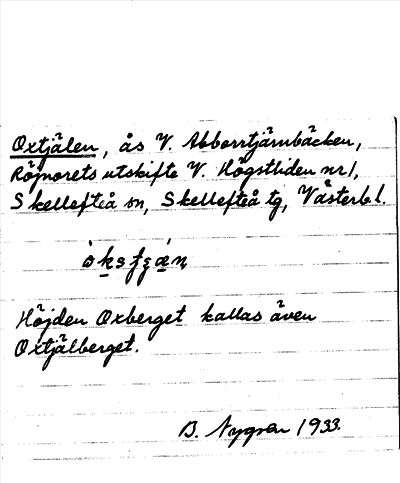 Oxtjälen, ås V. Abborrtjärnbäcken,
Röjnorets utskifte V. Högstliden nr 1,
Skellefteå sn, Skellefteå tg, Västerb. l.
Höjden Oxberget kallas även
Oxtjälberget.
B. Nygren 1933.